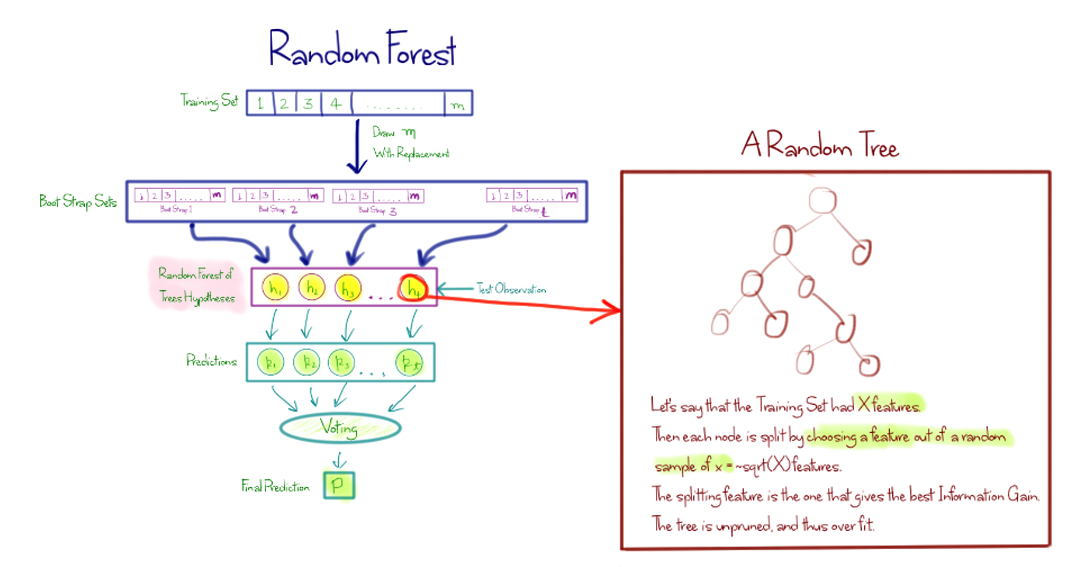 Random Forest
Training Set 1 2 3 4 ........ m
Draw m
With Replacement
Boot Strap Sets
1 2 3 ..... m 1 2 3 ..... m 1 2 3 ..... m 1 2 3 ..... m
Boot Strap 1 Boot Strap 2 Boot Strap 3 Boot Strap t
Random Forest of
Trees Hypotheses
h1 h2 h3 ... ht
Test Observation
Predictions P1 P2 P3 ... Pt
Voting
Final Prediction P
A Random Tree
Let's say that the Training Set had X features.
Then each node is split by choosing a feature out of a random
sample of x = ~sqrt(X) features.
The splitting feature is the one that gives the best Information Gain.
The tree is unpruned, and thus over fit.